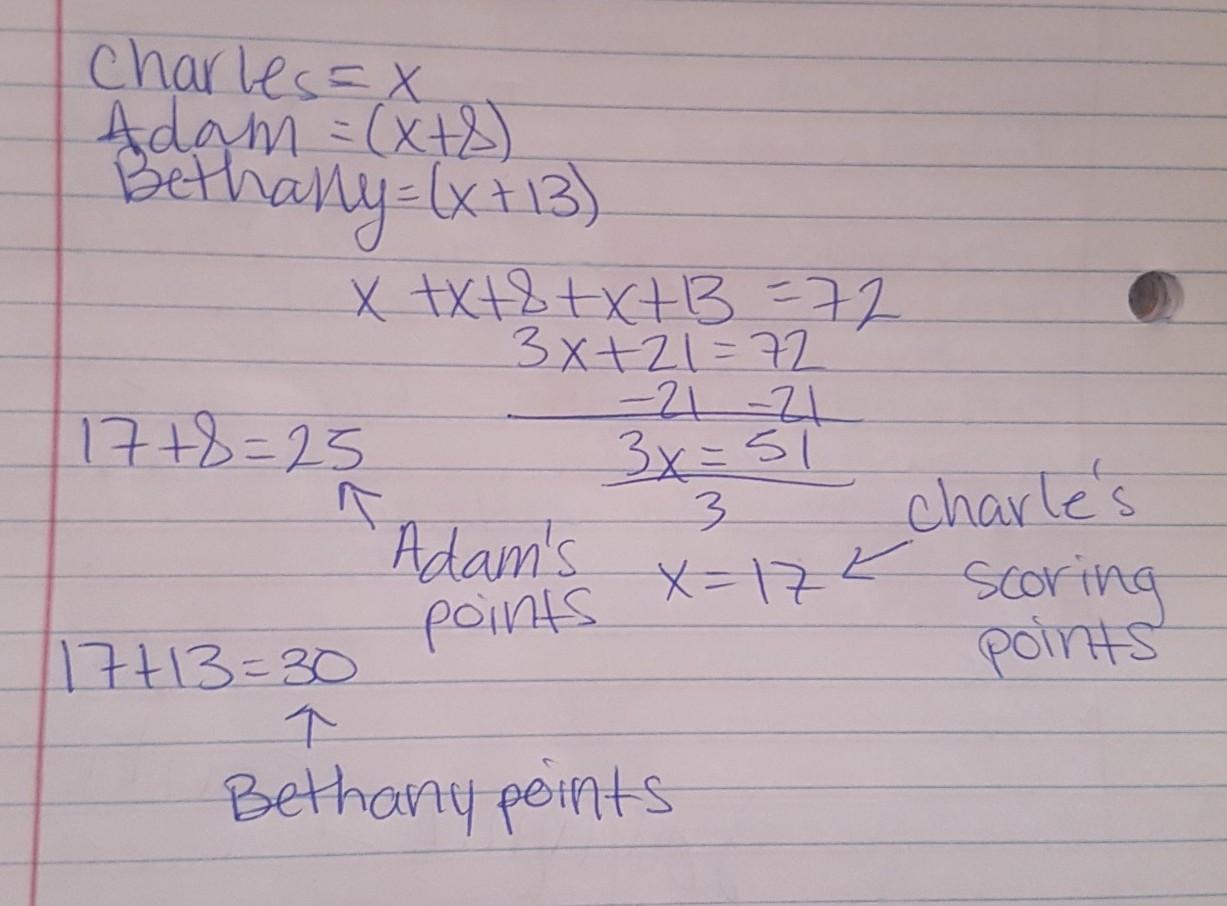 Charles = x
Adam = (x+8)
Bethany = (x+13)
x +x+8+x+13 =72
3x+21=72
-21 -21
3x = 51
3
x=17 ← Charle's
scoring
points
17+8=25
↑
Adam's
points
17+13=30
↑
Bethany points